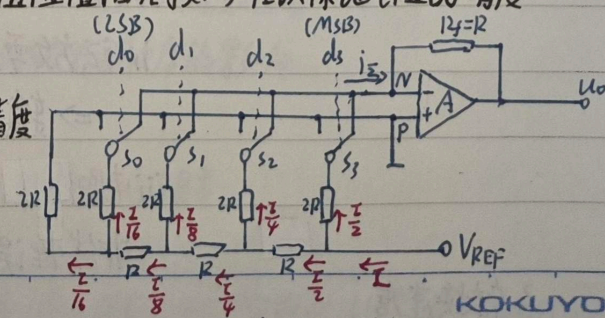 (LSB) (MSB)
d0 d1 d2 d3 iΣ Rf=R
N
- A
+
P
uo
度
S0 S1 S2 S3
2R 2R 2R 2R 2R
I/16 I/8 I/4 I/2
VREF
R R R
I/16 I/8 I/4 I/2 I
KOKUYO